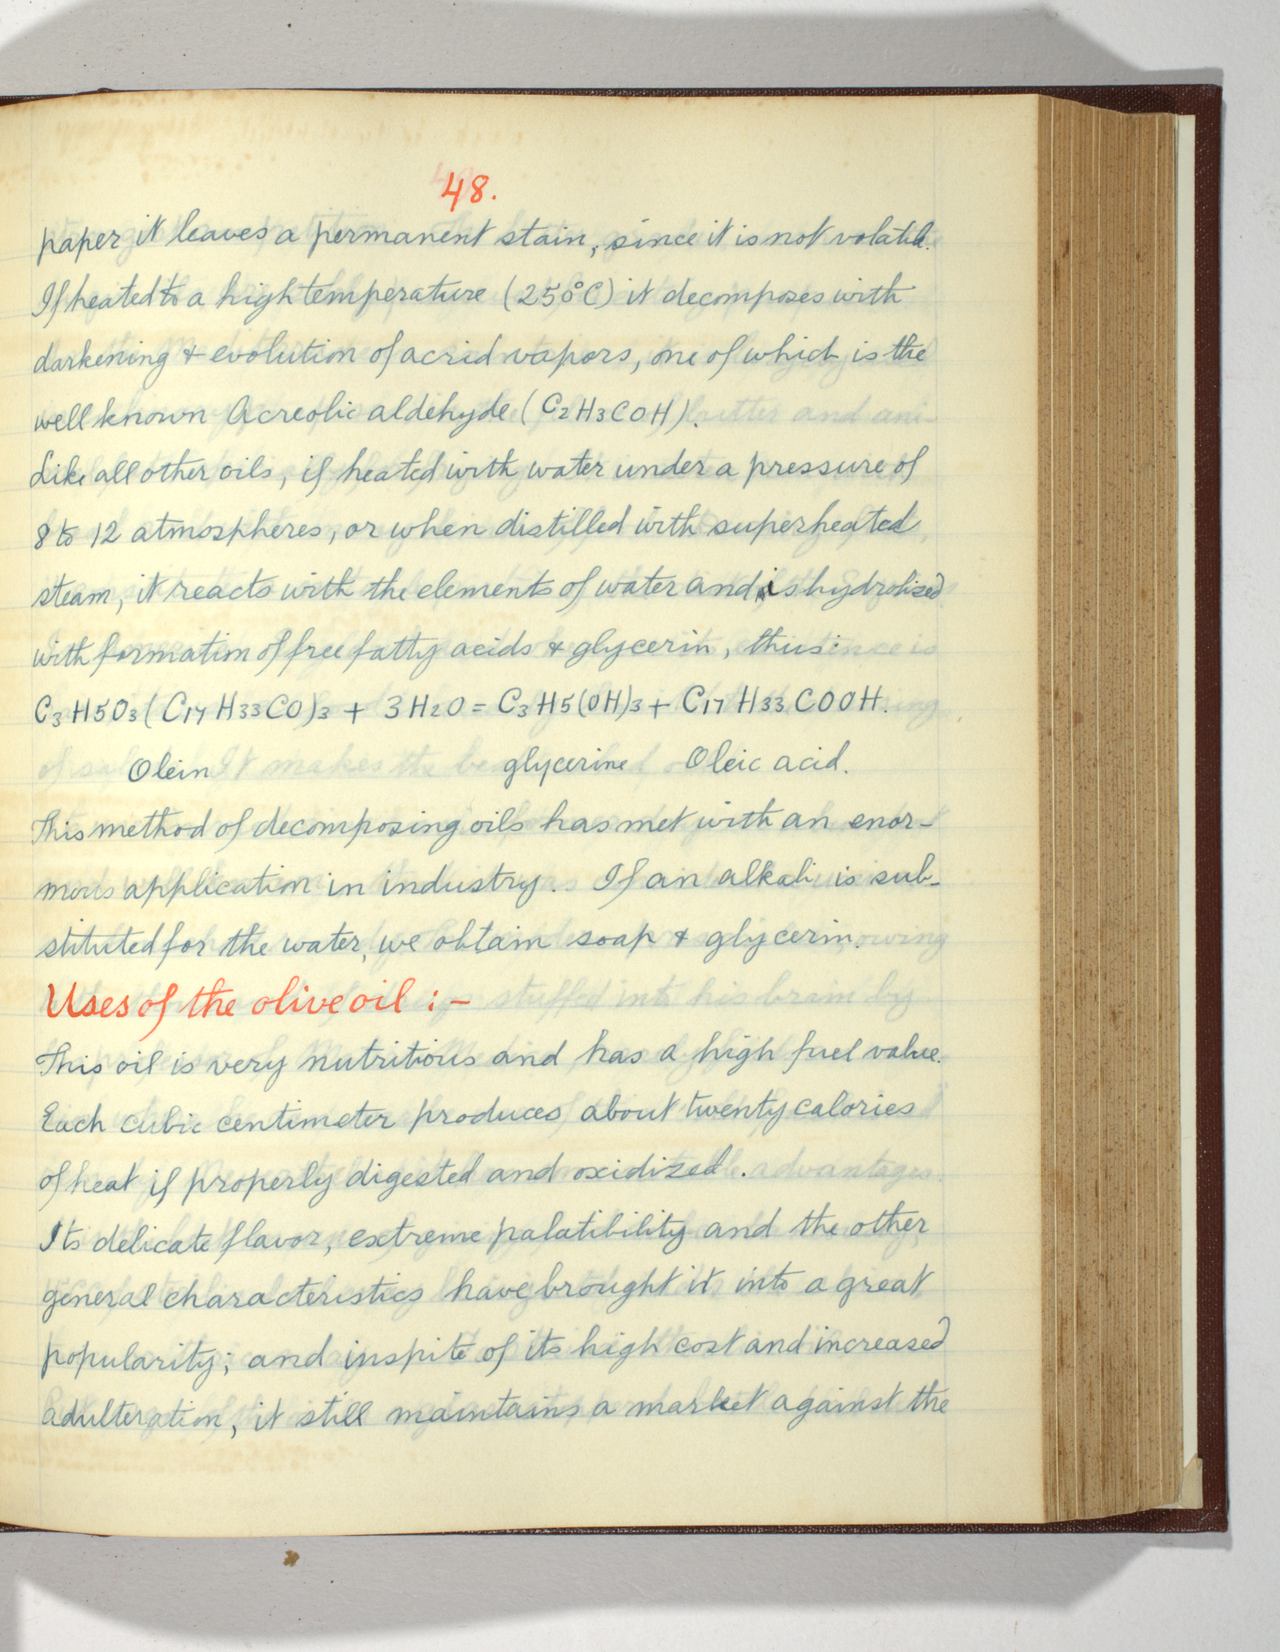 48.
paper it leaves a permanent stain, since it is not volatile.
If heated to a high temperature (250°C) it decomposes with
darkening & evolution of acrid vapors, one of which is the
well known Acreolic aldehyde (C2H3COH).
Like all other oils, if heated with water under a pressure of
8 to 12 atmospheres, or when distilled with superheated
steam, it reacts with the elements of water and is hydrolised
with formation of free fatty acids & glycerin, thus:
C3H5O3(C17H33CO)3 + 3H2O = C3H5(OH)3 + C17H33COOH.
Olein glycerine Oleic acid.
This method of decomposing oils has met with an enor-
mous application in industry. If an alkali is sub-
stituted for the water, we obtain soap & glycerin.
Uses of the olive oil :-
This oil is very nutritious and has a high fuel value.
Each cubic centimeter produces about twenty calories
of heat if properly digested and oxidized.
Its delicate flavor, extreme palatibility and the other
general characteristics have brought it into a great
popularity; and inspite of its high cost and increased
adulteration, it still maintains a market against the